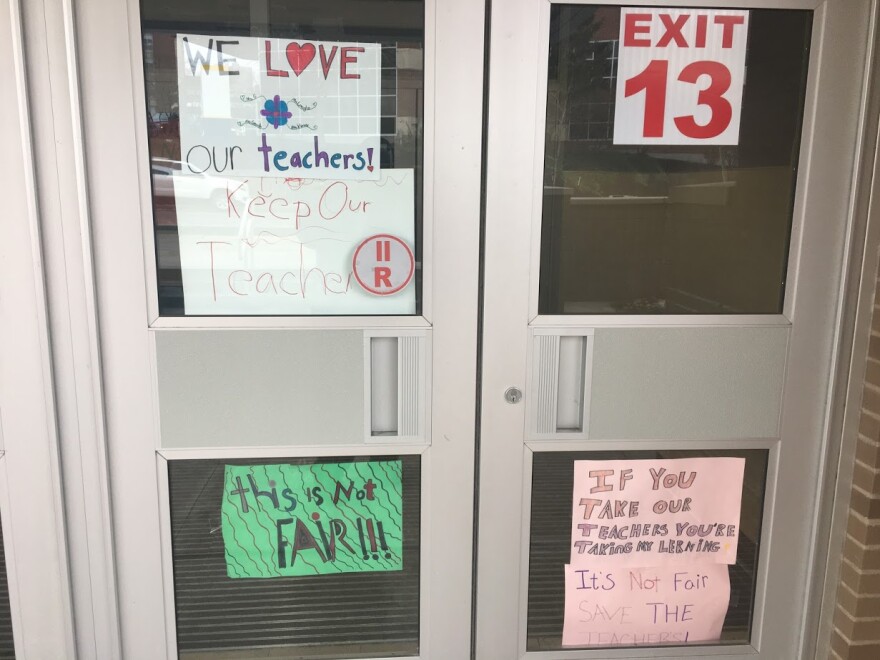 WE LOVE
our teachers!
Keep Our
Teacher
II
R
EXIT
13
this is Not
FAIR!!!
IF You
TAKE OUR
TEACHERS YOU'RE
TAKING MY LERNING
It's Not Fair
SAVE THE
TEACHERS!